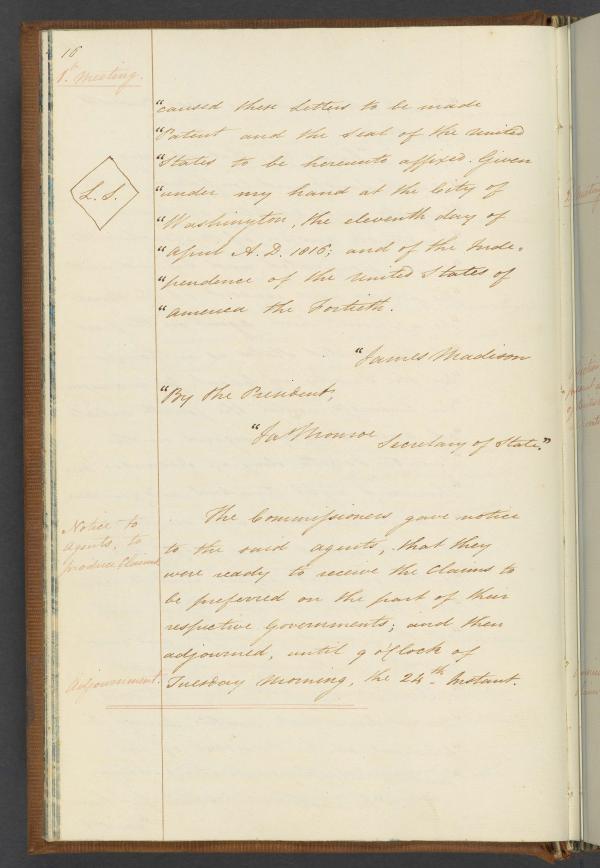 16
1st Meeting.
"caused these Letters to be made
"Patent and the Seal of the United
"States to be hereunto affixed. Given
L. S.
"under my hand at the City of
"Washington, the eleventh day of
"April A. D. 1816; and of the Inde-
"pendence of the United States of
"America the Fortieth.
"James Madison
"By the President,
"Jas Monroe Secretary of State."
The Commissioners gave notice
Notice to
Agents, to
produce Claims
to the said agents, that they
were ready to receive the Claims to
be preferred on the part of their
respective Governments; and then
adjourned, until 9 o'Clock of
Adjournment.
Tuesday Morning, the 24th Instant.